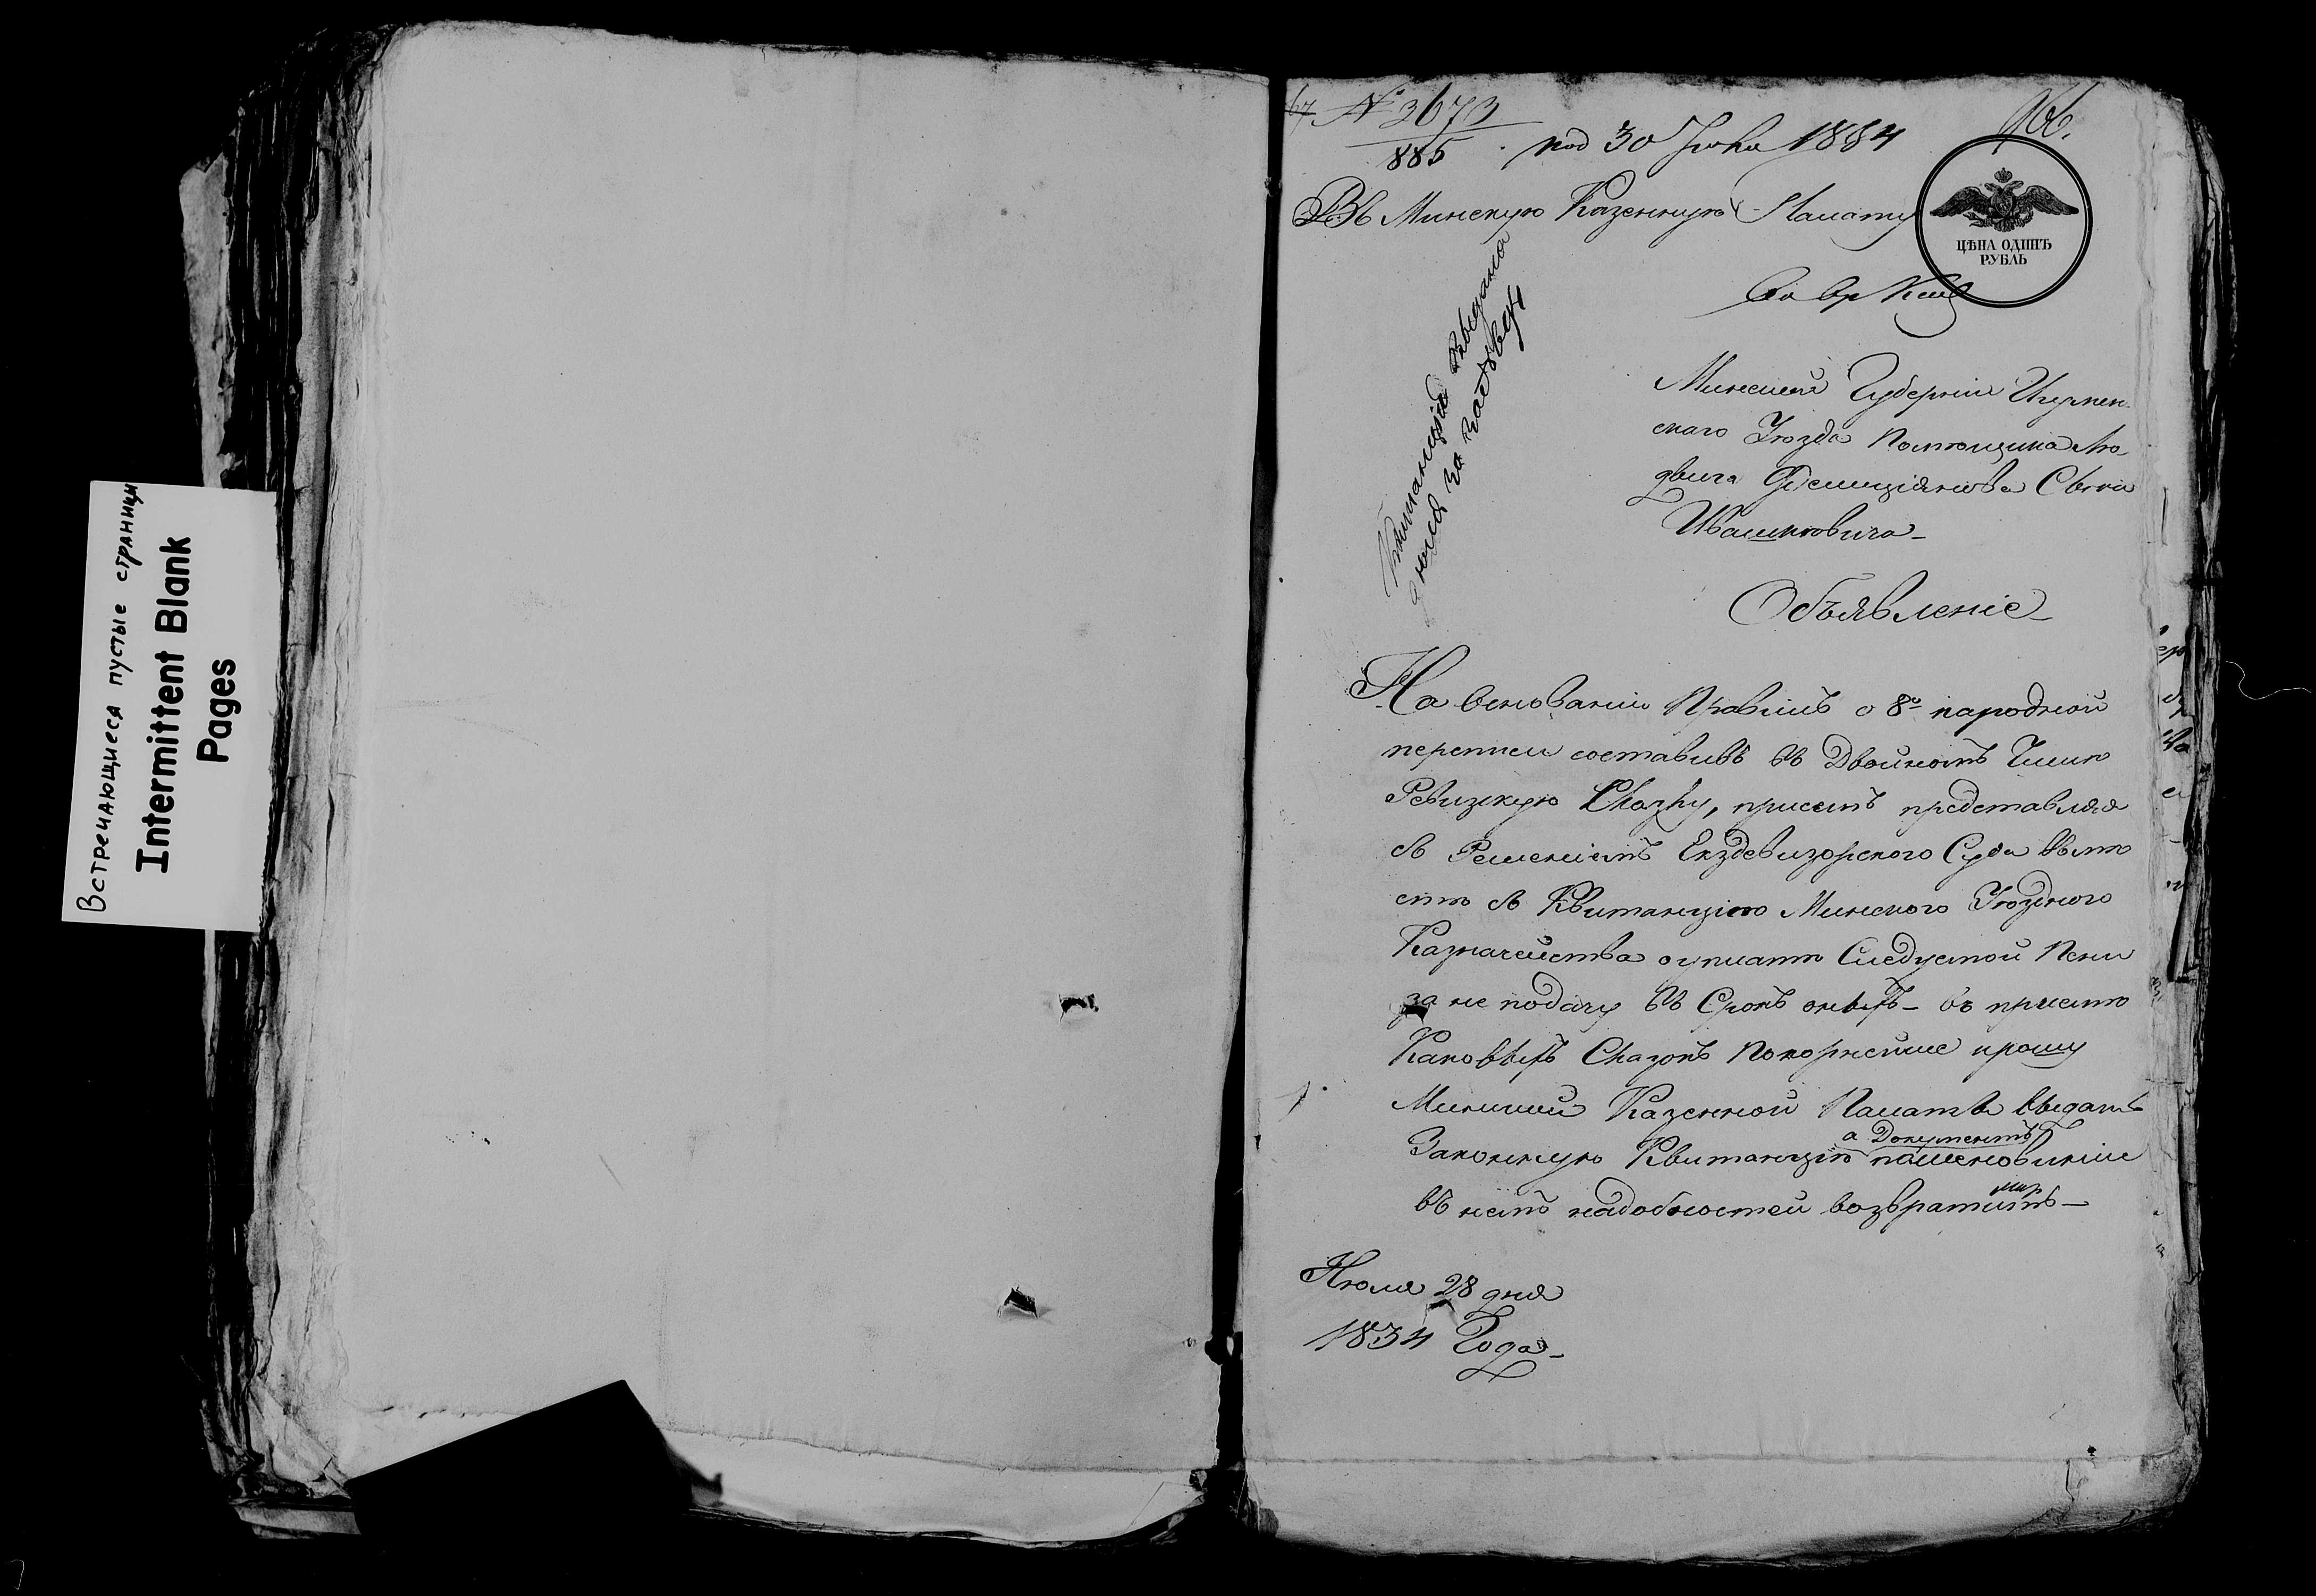 Встречающиеся пустые страницы
Intermittent Blank
Pages
№ 3673
885 под 30 1834
Въ Минскую Казенную Палату
ЦѢНА ОДИНЪ
РУБЛЬ
Квитанция выдана
Минской Губерніи Игумен-
скаго Уѣзда Помѣщика Лю-
двига Фелиціянова Сына
Ивашкѣвича
Объявленіе
На основаніи Правилъ о 8й народной
переписи составивъ въ Двойномъ Числѣ
Ревизкую Сказку, присемъ представляя
съ Решеніемъ Екздевизорского Суда вмѣ
стѣ съ Квитанціею Минского Уѣздного
Казначейства о уплатѣ Следуемой Пени
за не подачу въ Срокъ оныхъ въ пріемѣ
Каковыхъ Сказокъ Покорнейше прошу
Минской Казенной Палаты выдать
а Документъ
Законную Квитанцію помѣновеніи
въ немъ надобностей возвратить
Июля 28 дня
1834 Года